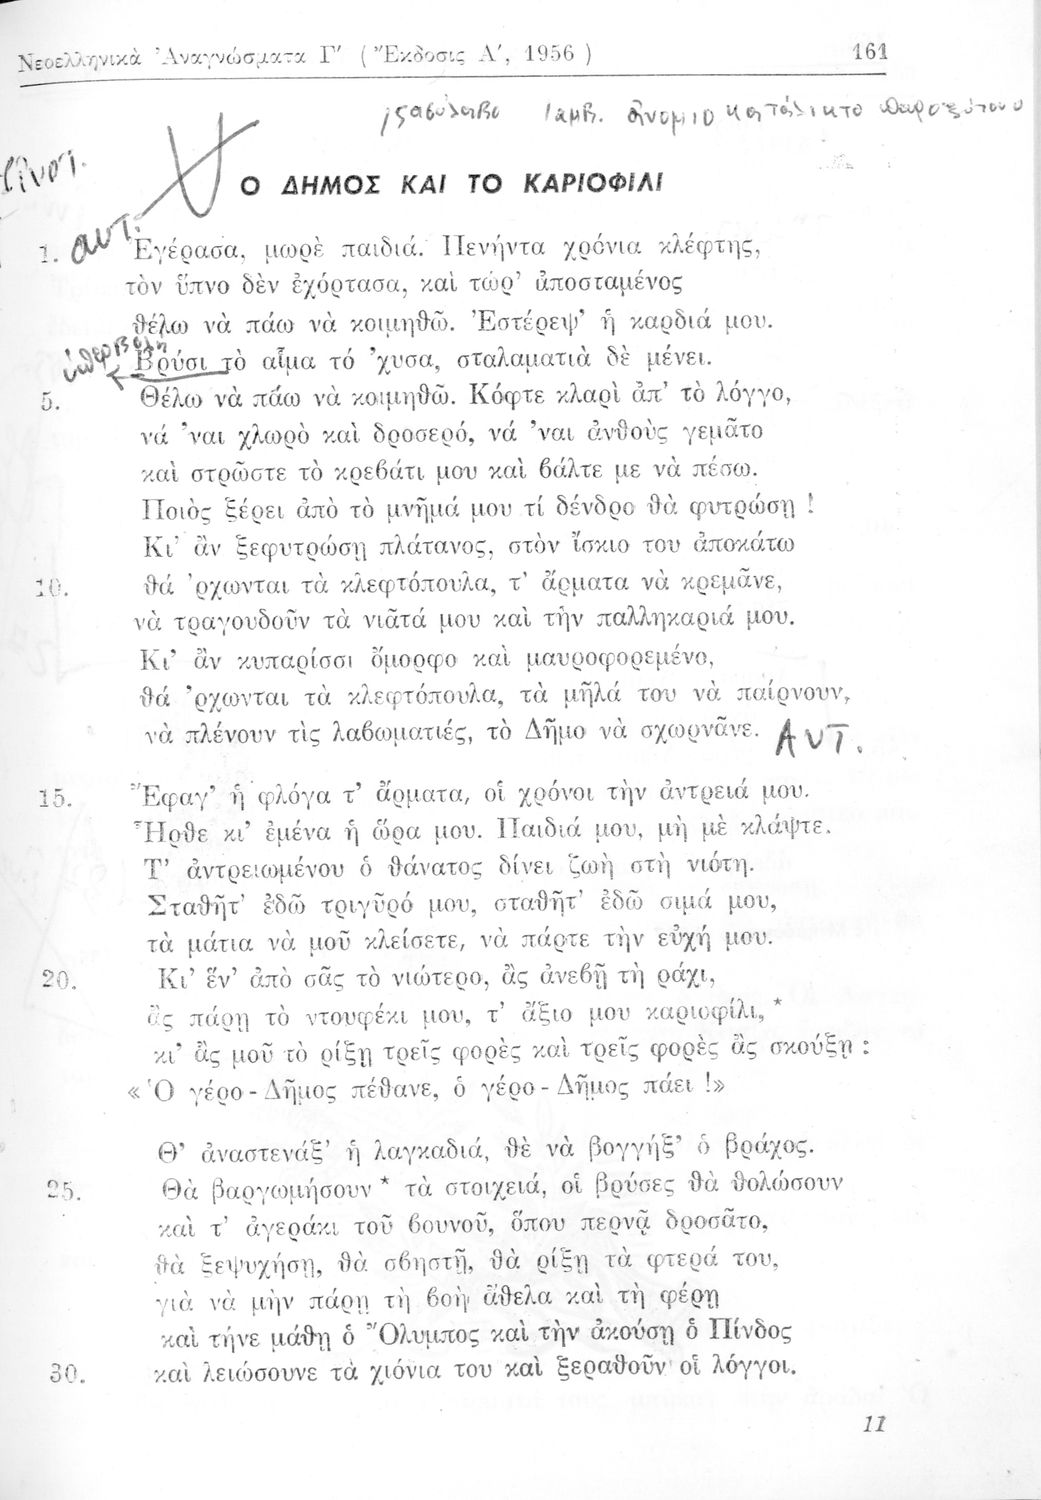 Νεοελληνικὰ Ἀναγνώσματα Γ΄ ( Ἔκδοσις Α΄, 1956 ) 161
ἰαμβ. ἀνομοιο κατάληκτο παροξύτονο
Ο ΔΗΜΟΣ ΚΑΙ ΤΟ ΚΑΡΙΟΦΙΛΙ
αντ.
1. Ἐγέρασα, μωρὲ παιδιά. Πενήντα χρόνια κλέφτης,
τὸν ὕπνο δὲν ἐχόρτασα, καὶ τώρ' ἀποσταμένος
θέλω νὰ πάω νὰ κοιμηθῶ. Ἐστέρεψ' ἡ καρδιά μου.
ὑπερβολή
Βρύσι τὸ αἷμα τό 'χυσα, σταλαματιὰ δὲ μένει.
5. Θέλω νὰ πάω νὰ κοιμηθῶ. Κόφτε κλαρὶ ἀπ' τὸ λόγγο,
νά 'ναι χλωρὸ καὶ δροσερό, νά 'ναι ἀνθοὺς γεμᾶτο
καὶ στρῶστε τὸ κρεβάτι μου καὶ βάλτε με νὰ πέσω.
Ποιὸς ξέρει ἀπὸ τὸ μνῆμά μου τί δένδρο θὰ φυτρώσῃ !
Κι' ἂν ξεφυτρώσῃ πλάτανος, στὸν ἴσκιο του ἀποκάτω
10. θά 'ρχωνται τὰ κλεφτόπουλα, τ' ἄρματα νὰ κρεμᾶνε,
νὰ τραγουδοῦν τὰ νιᾶτά μου καὶ τὴν παλληκαριά μου.
Κι' ἂν κυπαρίσσι ὄμορφο καὶ μαυροφορεμένο,
θά 'ρχωνται τὰ κλεφτόπουλα, τὰ μῆλά του νὰ παίρνουν,
νὰ πλένουν τὶς λαβωματιές, τὸ Δῆμο νὰ σχωρνᾶνε. ΑΝΤ.
15. Ἔφαγ' ἡ φλόγα τ' ἄρματα, οἱ χρόνοι τὴν ἀντρειά μου.
Ἦρθε κι' ἐμένα ἡ ὥρα μου. Παιδιά μου, μὴ μὲ κλάψτε.
Τ' ἀντρειωμένου ὁ θάνατος δίνει ζωὴ στὴ νιότη.
Σταθῆτ' ἐδῶ τριγῦρό μου, σταθῆτ' ἐδῶ σιμά μου,
τὰ μάτια νὰ μοῦ κλείσετε, νὰ πάρτε τὴν εὐχή μου.
20. Κι' ἕν' ἀπὸ σᾶς τὸ νιώτερο, ἂς ἀνεβῇ τὴ ράχι,
ἂς πάρῃ τὸ ντουφέκι μου, τ' ἄξιο μου καριοφίλι, *
κι' ἂς μοῦ τὸ ρίξῃ τρεῖς φορὲς καὶ τρεῖς φορὲς ἂς σκούξῃ :
« Ὁ γέρο - Δῆμος πέθανε, ὁ γέρο - Δῆμος πάει !»
Θ' ἀναστενάξ' ἡ λαγκαδιά, θὲ νὰ βογγήξ' ὁ βράχος.
25. Θὰ βαργωμήσουν * τὰ στοιχειά, οἱ βρύσες θὰ θολώσουν
καὶ τ' ἀγεράκι τοῦ βουνοῦ, ὅπου περνᾷ δροσᾶτο,
θὰ ξεψυχήσῃ, θὰ σβηστῇ, θὰ ρίξῃ τὰ φτερά του,
γιὰ νὰ μὴν πάρῃ τὴ βοὴ ἄθελα καὶ τὴ φέρῃ
καὶ τήνε μάθῃ ὁ Ὄλυμπος καὶ τὴν ἀκούσῃ ὁ Πίνδος
30. καὶ λειώσουνε τὰ χιόνια του καὶ ξεραθοῦν οἱ λόγγοι.
11